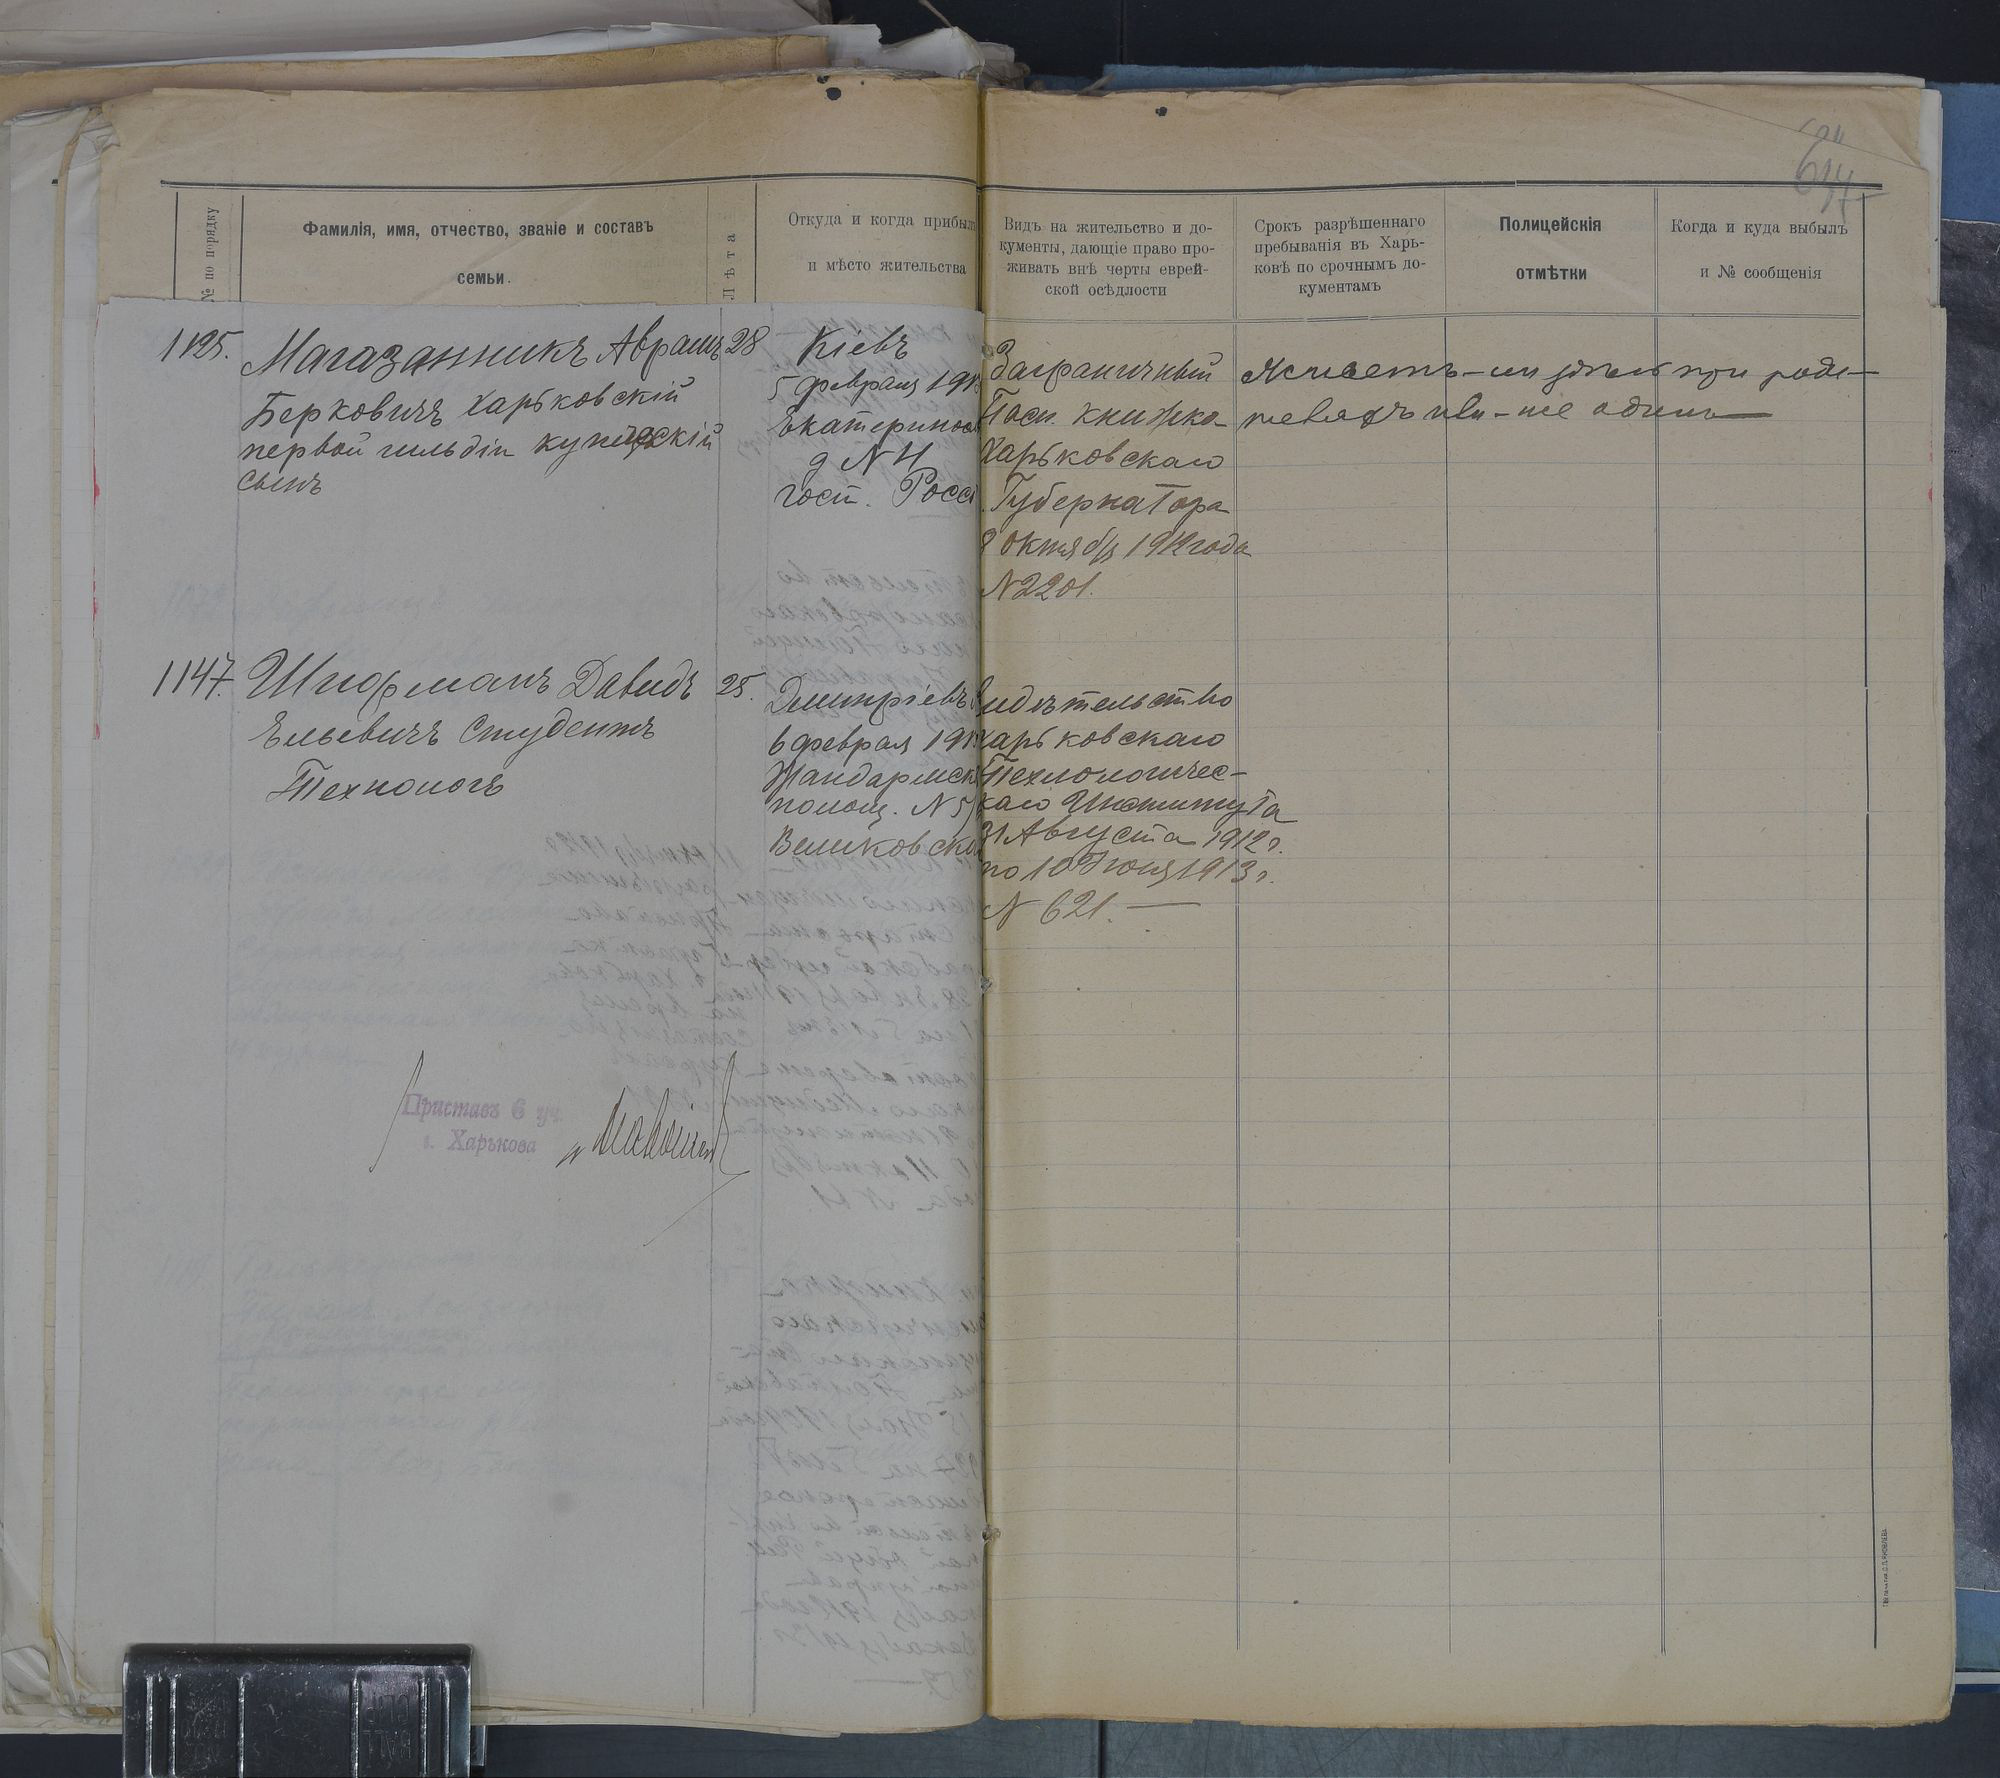 614
№ по порядку
Фамилія, имя, отчество, званіе и составъ
семьи.
Лѣта
Откуда и когда прибылъ
и мѣсто жительства
Видъ на жительство и до-
кументы, дающіе право про-
живать внѣ черты еврей-
ской осѣдлости
Срокъ разрѣшеннаго
пребыванія въ Харь-
ковѣ по срочнымъ до-
кументамъ
Полицейскія
отмѣтки
Когда и куда выбылъ
и № сообщенія
1125.
Магазанникъ Аврамъ
Берковичъ Харьковскій
первой гильдіи купеческій
сынъ
28
Кіевъ
5 февраля 191
Екатеринос
д N 4
гост. Росс
Заграничный
Пасп. книжка
Харьковскаго
Губернатора
8 октября 1912 года
N 2201.
Живетъ-ли здѣсь при роди-
теляхъ или-же одинъ
1147.
Шифманъ Давидъ
Ельевичъ Студентъ
Технологъ
25.
Дмитріевъ
6 февраля 191
Жандармск
полощ. N 5/
Великовской
Свидѣтельство
Харьковскаго
Технологичес-
каго Института
31 Августа 1912 г.
по 10 Июня 1913 г.
N 621.
Приставъ 6 уч.
г. Харькова